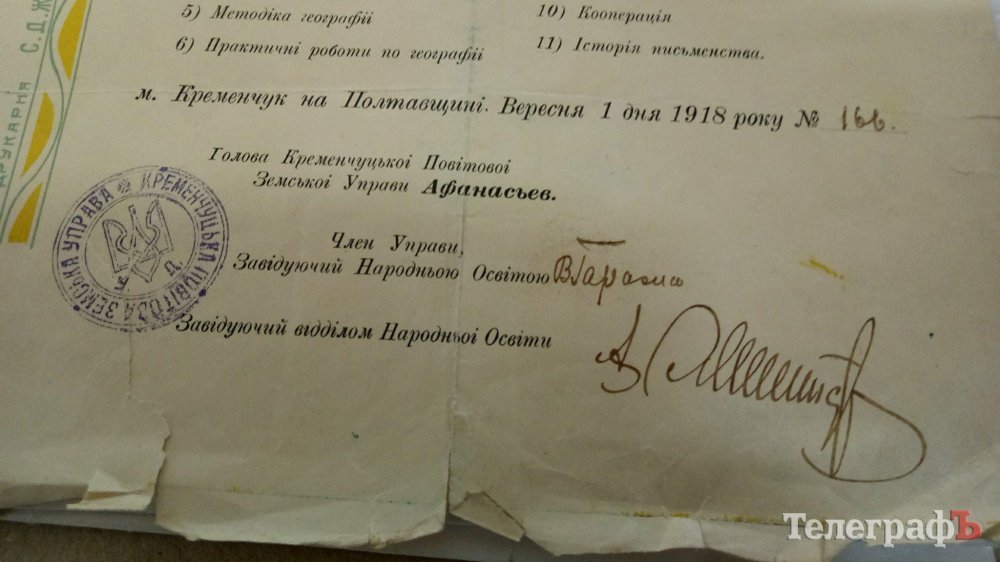 5) Методіка географіі
6) Практичні роботи по географіі
10) Кооперація
11) Історія письменства.
м. Кременчук на Полтавщині. Вересня 1 дня 1918 року № 166.
Голова Кременчуцької Повітової
Земської Управи Афанасьев.
Член Управи,
Завідуючий Народньою Освітою
Завідуючий відділом Народньоі Освіти
КРЕМЕНЧУЦЬКА ПОВІТОВА ЗЕМСЬКА УПРАВА
ДРУКАРНЯ С.Д.Ж
ТелеграфЪ